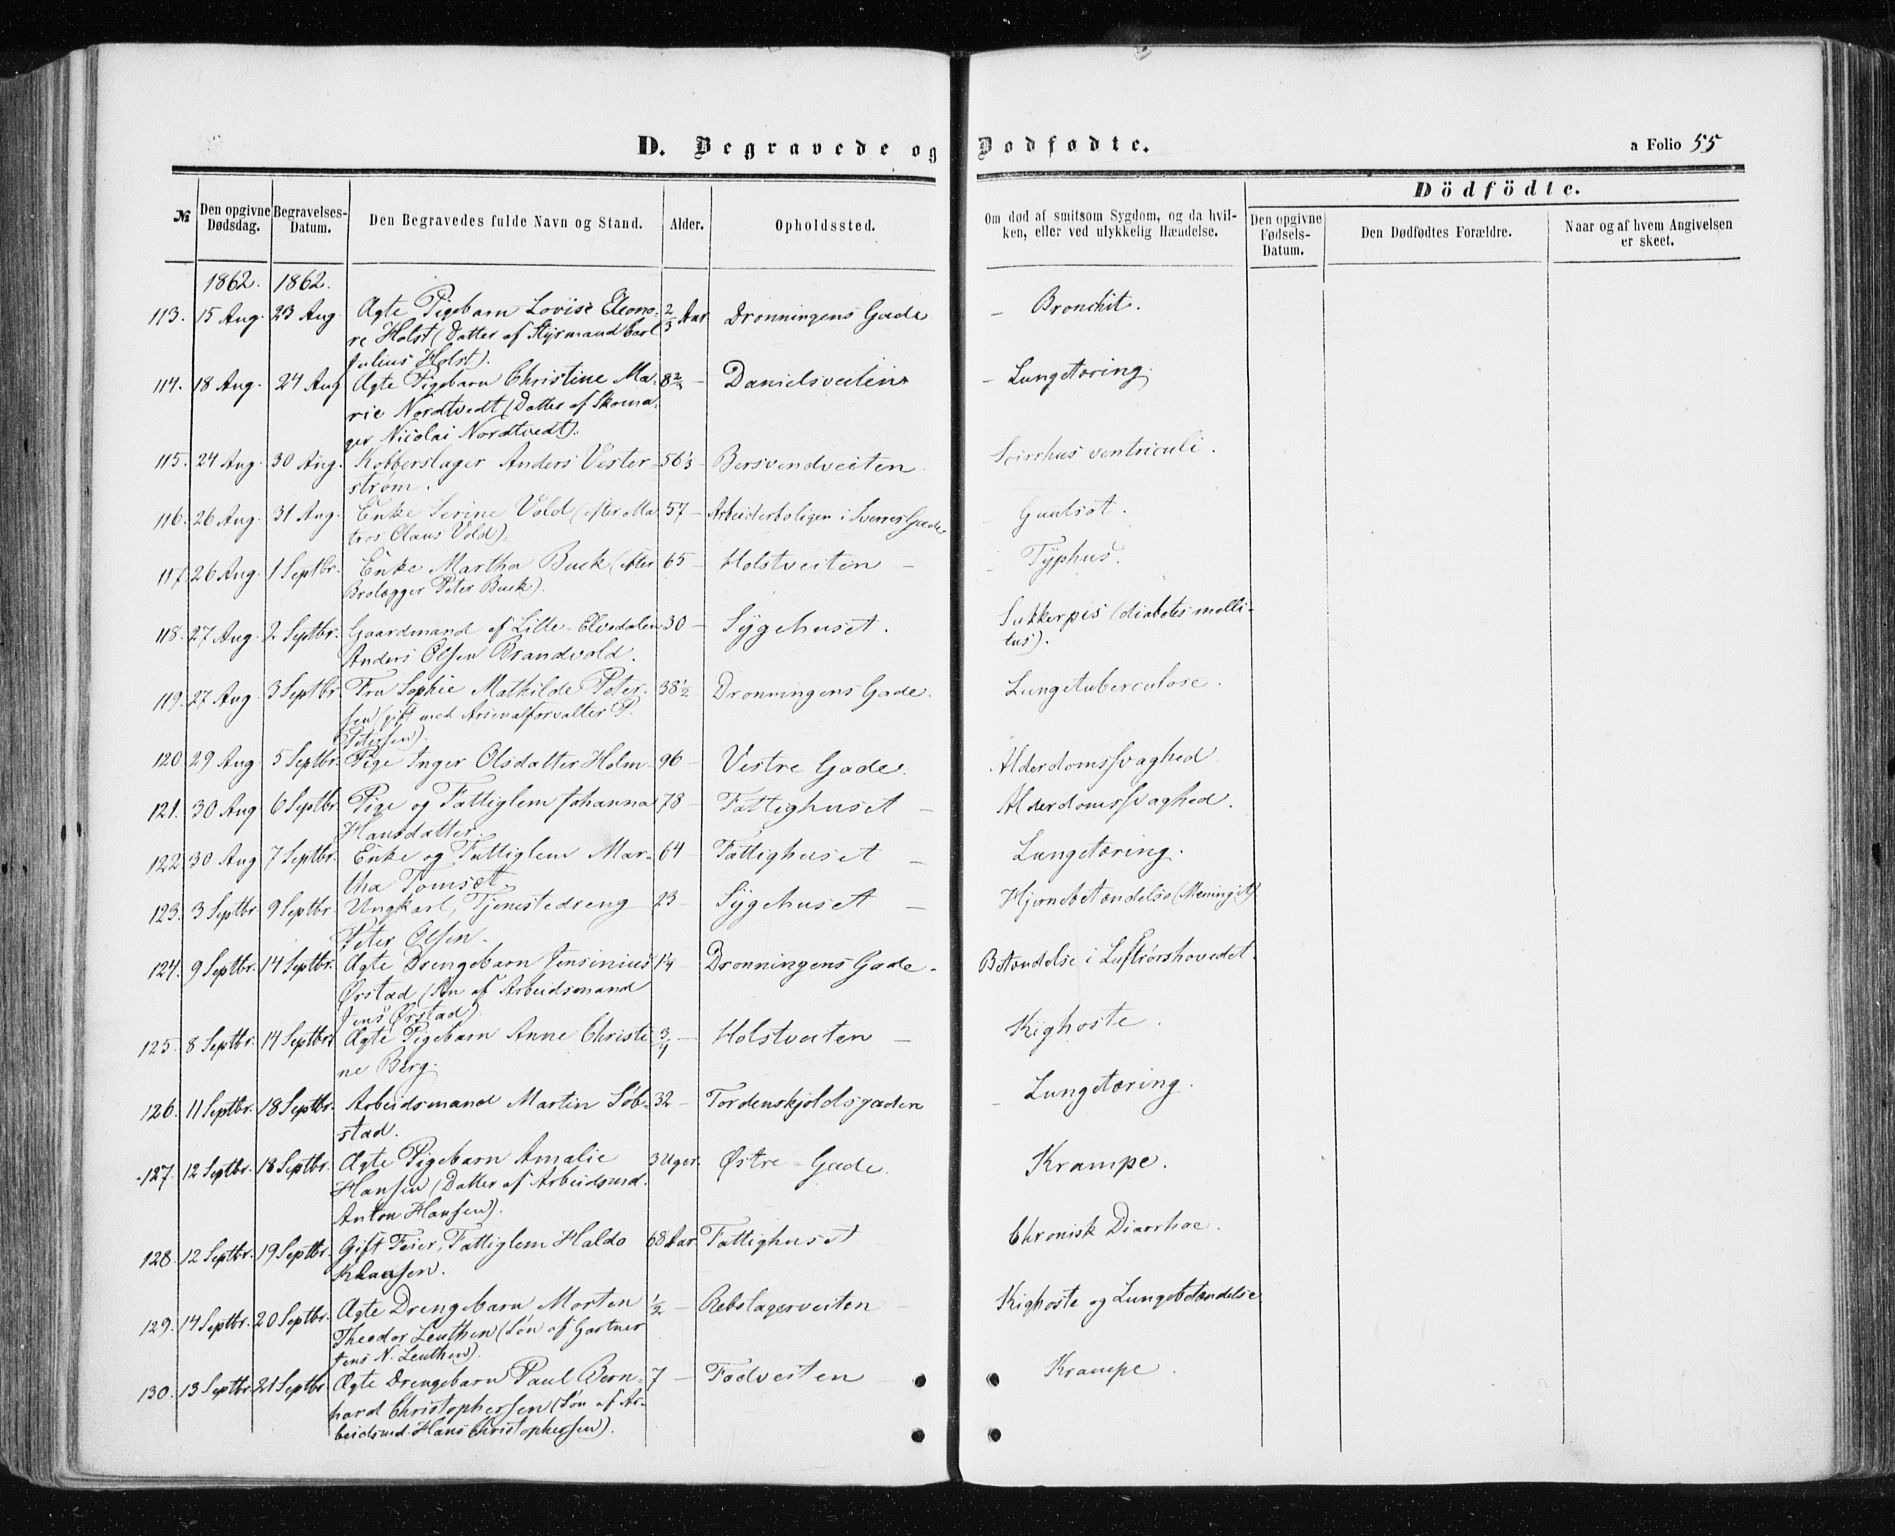 D. Begravede og Dødfødte.
a Folio 55
№
Den opgivne Dødsdag.
Begravelses-Datum.
Den Begravedes fulde Navn og Stand.
Alder.
Opholdssted.
Om død af smitsom Sygdom, og da hvil-
ken, eller ved ulykkelig Hændelse.
Dödfödte.
Den opgivne Fødsels-Datum.
Den Dødfødtes Forældre.
Naar og af hvem Angivelsen er skeet.
1862. 1862.
113. 15 Aug. 23 Aug Ægte Pigebarn Lovise Eleono- 2/3 Aar Dronningens Gade – Bronchit.
re Holst (Datter af Styrmand Carl
Julius Holst).
114. 18 Aug. 24 Aug Ægte Pigebarn Christine Ma- 8 2/3 – Danielsveiten – Lungetæring.
rie Nordtvedt (Datter af Skoma-
ger Nicolai Nordtvedt).
115. 24 Aug. 30 Aug. Kobberslager Anders Vester- 56 1/3 – Bersvendveiten. Scirrhus ventriculi.
strøm.
116. 26 Aug. 31 Aug. Enke Serine Vold (efter Ma- 57 – Arbeiderboligen i Sverres Gade – Guulsot.
tros Claus Vold).
117. 26 Aug. 1 Septbr. Enke Martha Buck (efter 65 – Holstveiten – Typhus.
Brolægger Peter Buck).
118. 27 Aug. 2 Septbr. Gaardmand af Lille-Elvedalen 30 – Sygehuset. Sukkerpis (diabetes melli-
Anders Olsen Brandvold. tus).
119. 27 Aug. 3 Septbr. Fru Sophie Mathilde Peter- 38 1/2 – Dronningens Gade. Lungetuberculose.
sen (gift med Arsenalforvalter P.
Petersen).
120. 29 Aug 5 Septbr. Pige Inger Olsdatter Holm – 96 – Vestre Gade. Alderdomssvaghed
121. 30 Aug 6 Septbr. Pige og Fattiglem Johanna 78 – Fattighuset – Alderdomssvaghed.
Hansdatter.
122. 30 Aug 7 Septbr. Enke og Fattiglem Mar- 64 – Fattighuset – Lungetæring.
tha Tomset.
123. 3 Septbr 9 Septbr. Ungkarl, Tjenestedreng 23 – Sygehuset – Hjernebetændelse (Meningit)
Peter Olsen.
124. 9 Septbr. 14 Septbr. Ægte Drengebarn Jensinius 1 1/4 – Dronningens Gade. Betændelse i Luftrørshovedet.
Ørstad (Søn af Arbeidsmand
Jens Ørstad).
125. 8 Septbr. 14 Septbr. Ægte Pigebarn Anne Christi- 3/4 – Holstveiten – Kighoste.
ne Berg.
126. 11 Septbr. 18 Septbr. Arbeidsmand Martin Løb- 32 – Tordenskjoldsgaden – Lungetæring.
stad.
127. 12 Septbr. 18 Septbr. Ægte Pigebarn Amalie 3 Uger. Østre-Gade. Krampe.
Hansen (Datter af Arbeidsmd.
Anton Hansen).
128. 12 Septbr. 19 Septbr. Gift Feier, Fattiglem Haldo 68 Aar. Fattighuset Chronisk Diarrhoe.
Klausen.
129. 14 Septbr. 20 Septbr. Ægte Drengebarn Morten 1/2 – Rebslagerveiten – Kighoste og Lungebetændelse
Theodor Leuthen (Søn af Gartner
Jens N. Leuthen).
130. 13 Septbr. 21 Septbr. Ægte Drengebarn Paul Bern- 7 – Fadveiten Krampe.
hard Christophersen (Søn af Ar-
beidsmd. Hans Christophersen).